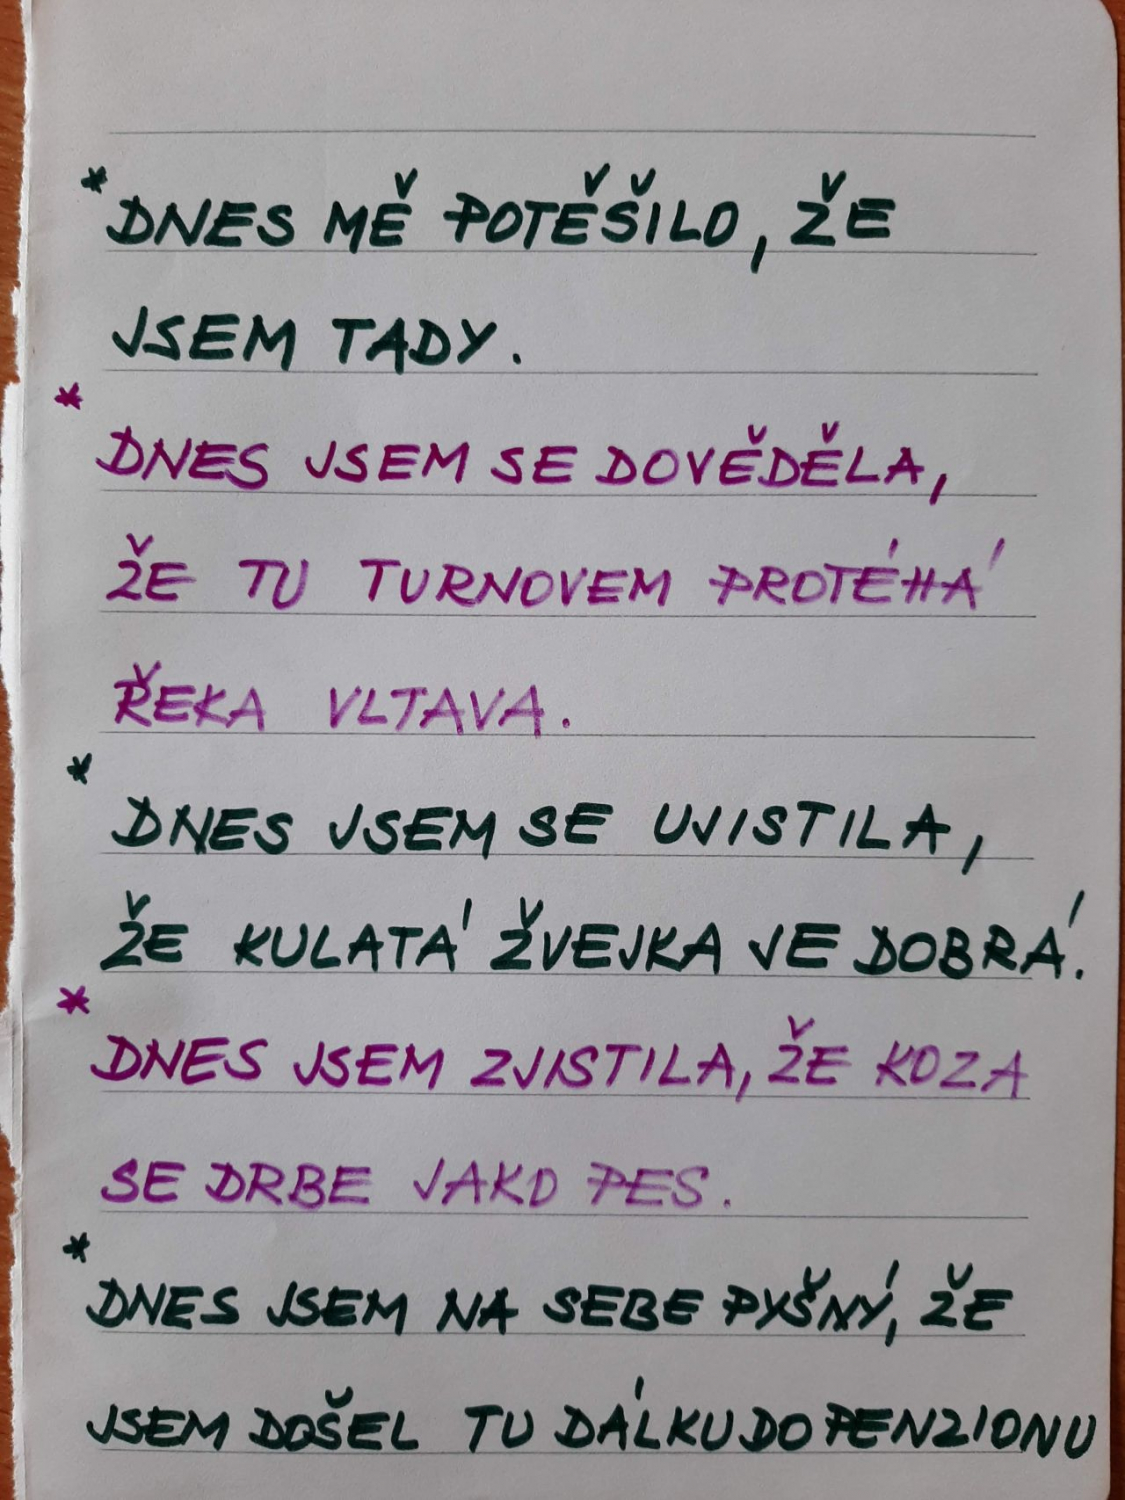 * DNES MĚ POTĚŠILO, ŽE
JSEM TADY.
* DNES JSEM SE DOVĚDĚLA,
ŽE TU TURNOVEM PROTÉHÁ
ŘEKA VLTAVA.
* DNES JSEM SE UJISTILA,
ŽE KULATÁ ŽVEJKA JE DOBRÁ.
* DNES JSEM ZJISTILA, ŽE KOZA
SE DRBE JAKO PES.
* DNES JSEM NA SEBE PYŠNÝ, ŽE
JSEM DOŠEL TU DÁLKU DO PENZIONU